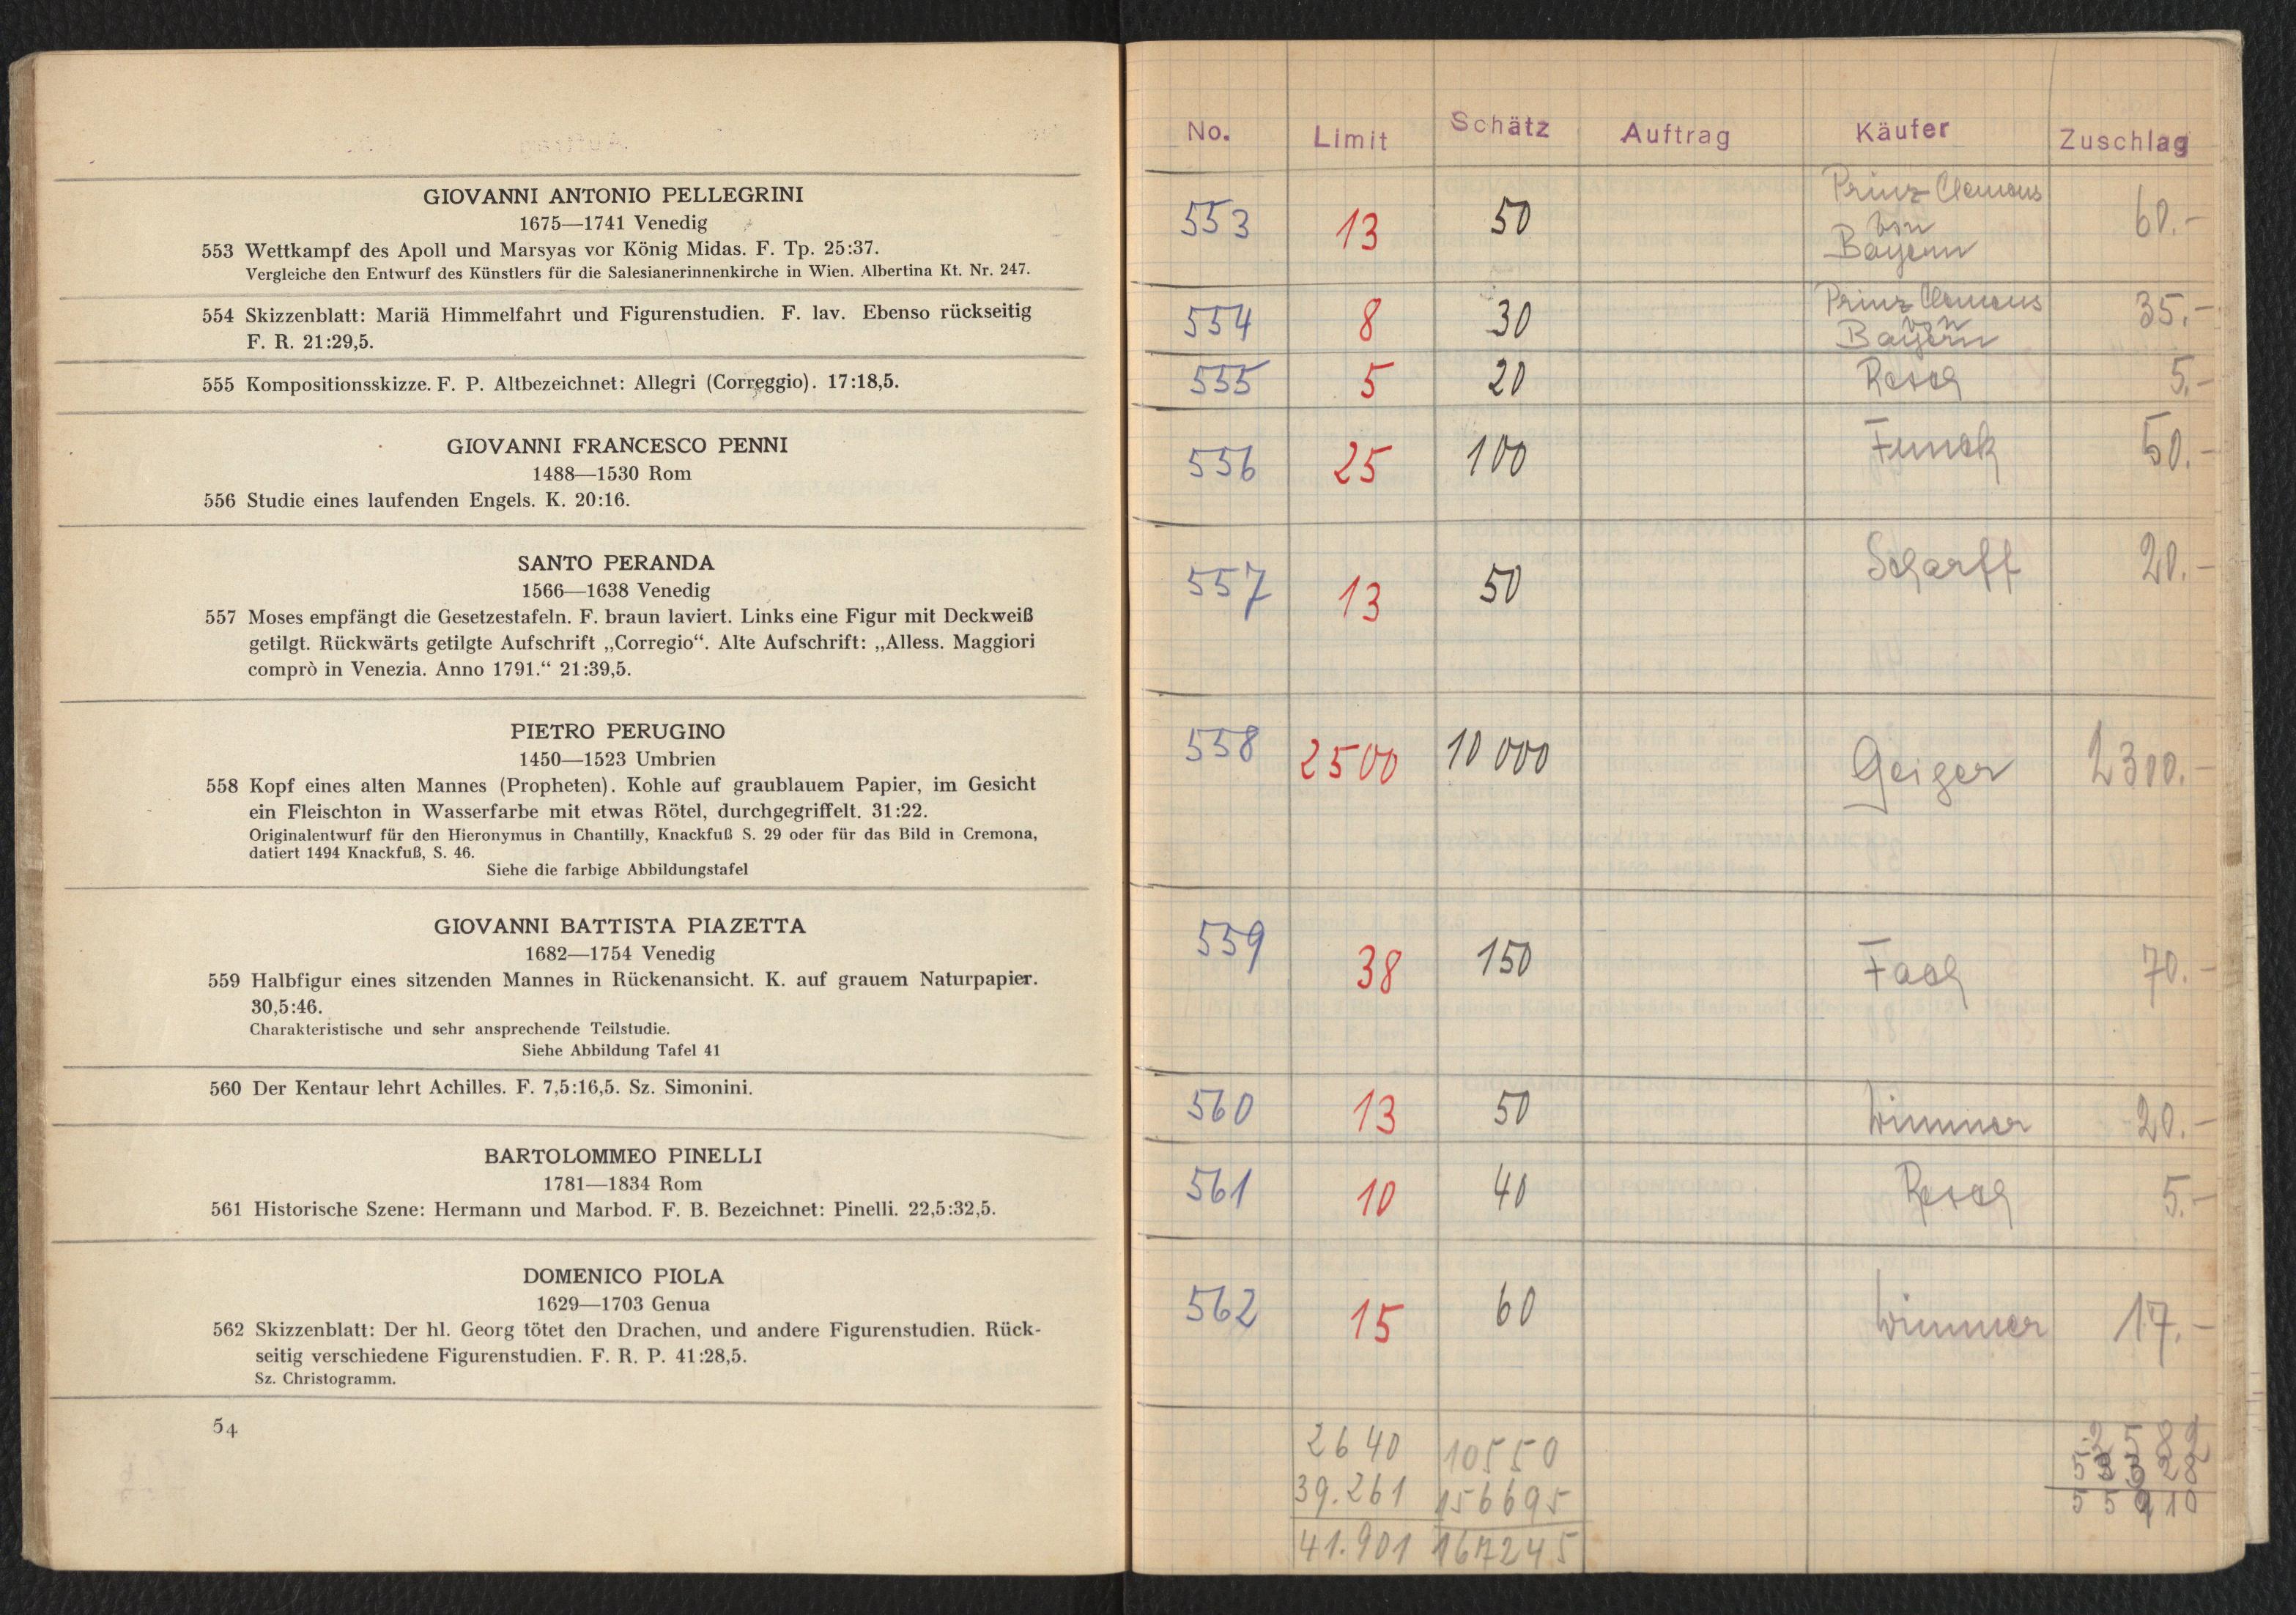 GIOVANNI ANTONIO PELLEGRINI
1675—1741 Venedig
553 Wettkampf des Apoll und Marsyas vor König Midas. F. Tp. 25:37.
Vergleiche den Entwurf des Künstlers für die Salesianerinnenkirche in Wien. Albertina Kt. Nr. 247.
554 Skizzenblatt: Mariä Himmelfahrt und Figurenstudien. F. lav. Ebenso rückseitig
F. R. 21:29,5.
555 Kompositionsskizze. F. P. Altbezeichnet: Allegri (Correggio). 17:18,5.
GIOVANNI FRANCESCO PENNI
1488—1530 Rom
556 Studie eines laufenden Engels. K. 20:16.
SANTO PERANDA
1566—1638 Venedig
557 Moses empfängt die Gesetzestafeln. F. braun laviert. Links eine Figur mit Deckweiß
getilgt. Rückwärts getilgte Aufschrift „Corregio“. Alte Aufschrift: „Alless. Maggiori
comprò in Venezia. Anno 1791.“ 21:39,5.
PIETRO PERUGINO
1450—1523 Umbrien
558 Kopf eines alten Mannes (Propheten). Kohle auf graublauem Papier, im Gesicht
ein Fleischton in Wasserfarbe mit etwas Rötel, durchgegriffelt. 31:22.
Originalentwurf für den Hieronymus in Chantilly, Knackfuß S. 29 oder für das Bild in Cremona,
datiert 1494 Knackfuß, S. 46.
Siehe die farbige Abbildungstafel
GIOVANNI BATTISTA PIAZETTA
1682—1754 Venedig
559 Halbfigur eines sitzenden Mannes in Rückenansicht. K. auf grauem Naturpapier.
30,5:46.
Charakteristische und sehr ansprechende Teilstudie.
Siehe Abbildung Tafel 41
560 Der Kentaur lehrt Achilles. F. 7,5:16,5. Sz. Simonini.
BARTOLOMMEO PINELLI
1781—1834 Rom
561 Historische Szene: Hermann und Marbod. F. B. Bezeichnet: Pinelli. 22,5:32,5.
DOMENICO PIOLA
1629—1703 Genua
562 Skizzenblatt: Der hl. Georg tötet den Drachen, und andere Figurenstudien. Rück-
seitig verschiedene Figurenstudien. F. R. P. 41:28,5.
Sz. Christogramm.
54
No. Limit Schätz Auftrag Käufer Zuschlag
553 13 50 Prinz Clemens von Bayern 60.-
554 8 30 Prinz Clemens von Bayern 35.-
555 5 20 Resch 5.-
556 25 100 Funck 50.-
557 13 50 Scharff 20.-
558 2500 10 000 Geiger 2300.-
559 38 150 Fach 70.-
560 13 50 Wimmer 20.-
561 10 40 Resch 5.-
562 15 60 Wimmer 17.-
2640 10550 2582
39.261 156695
41.901 167245